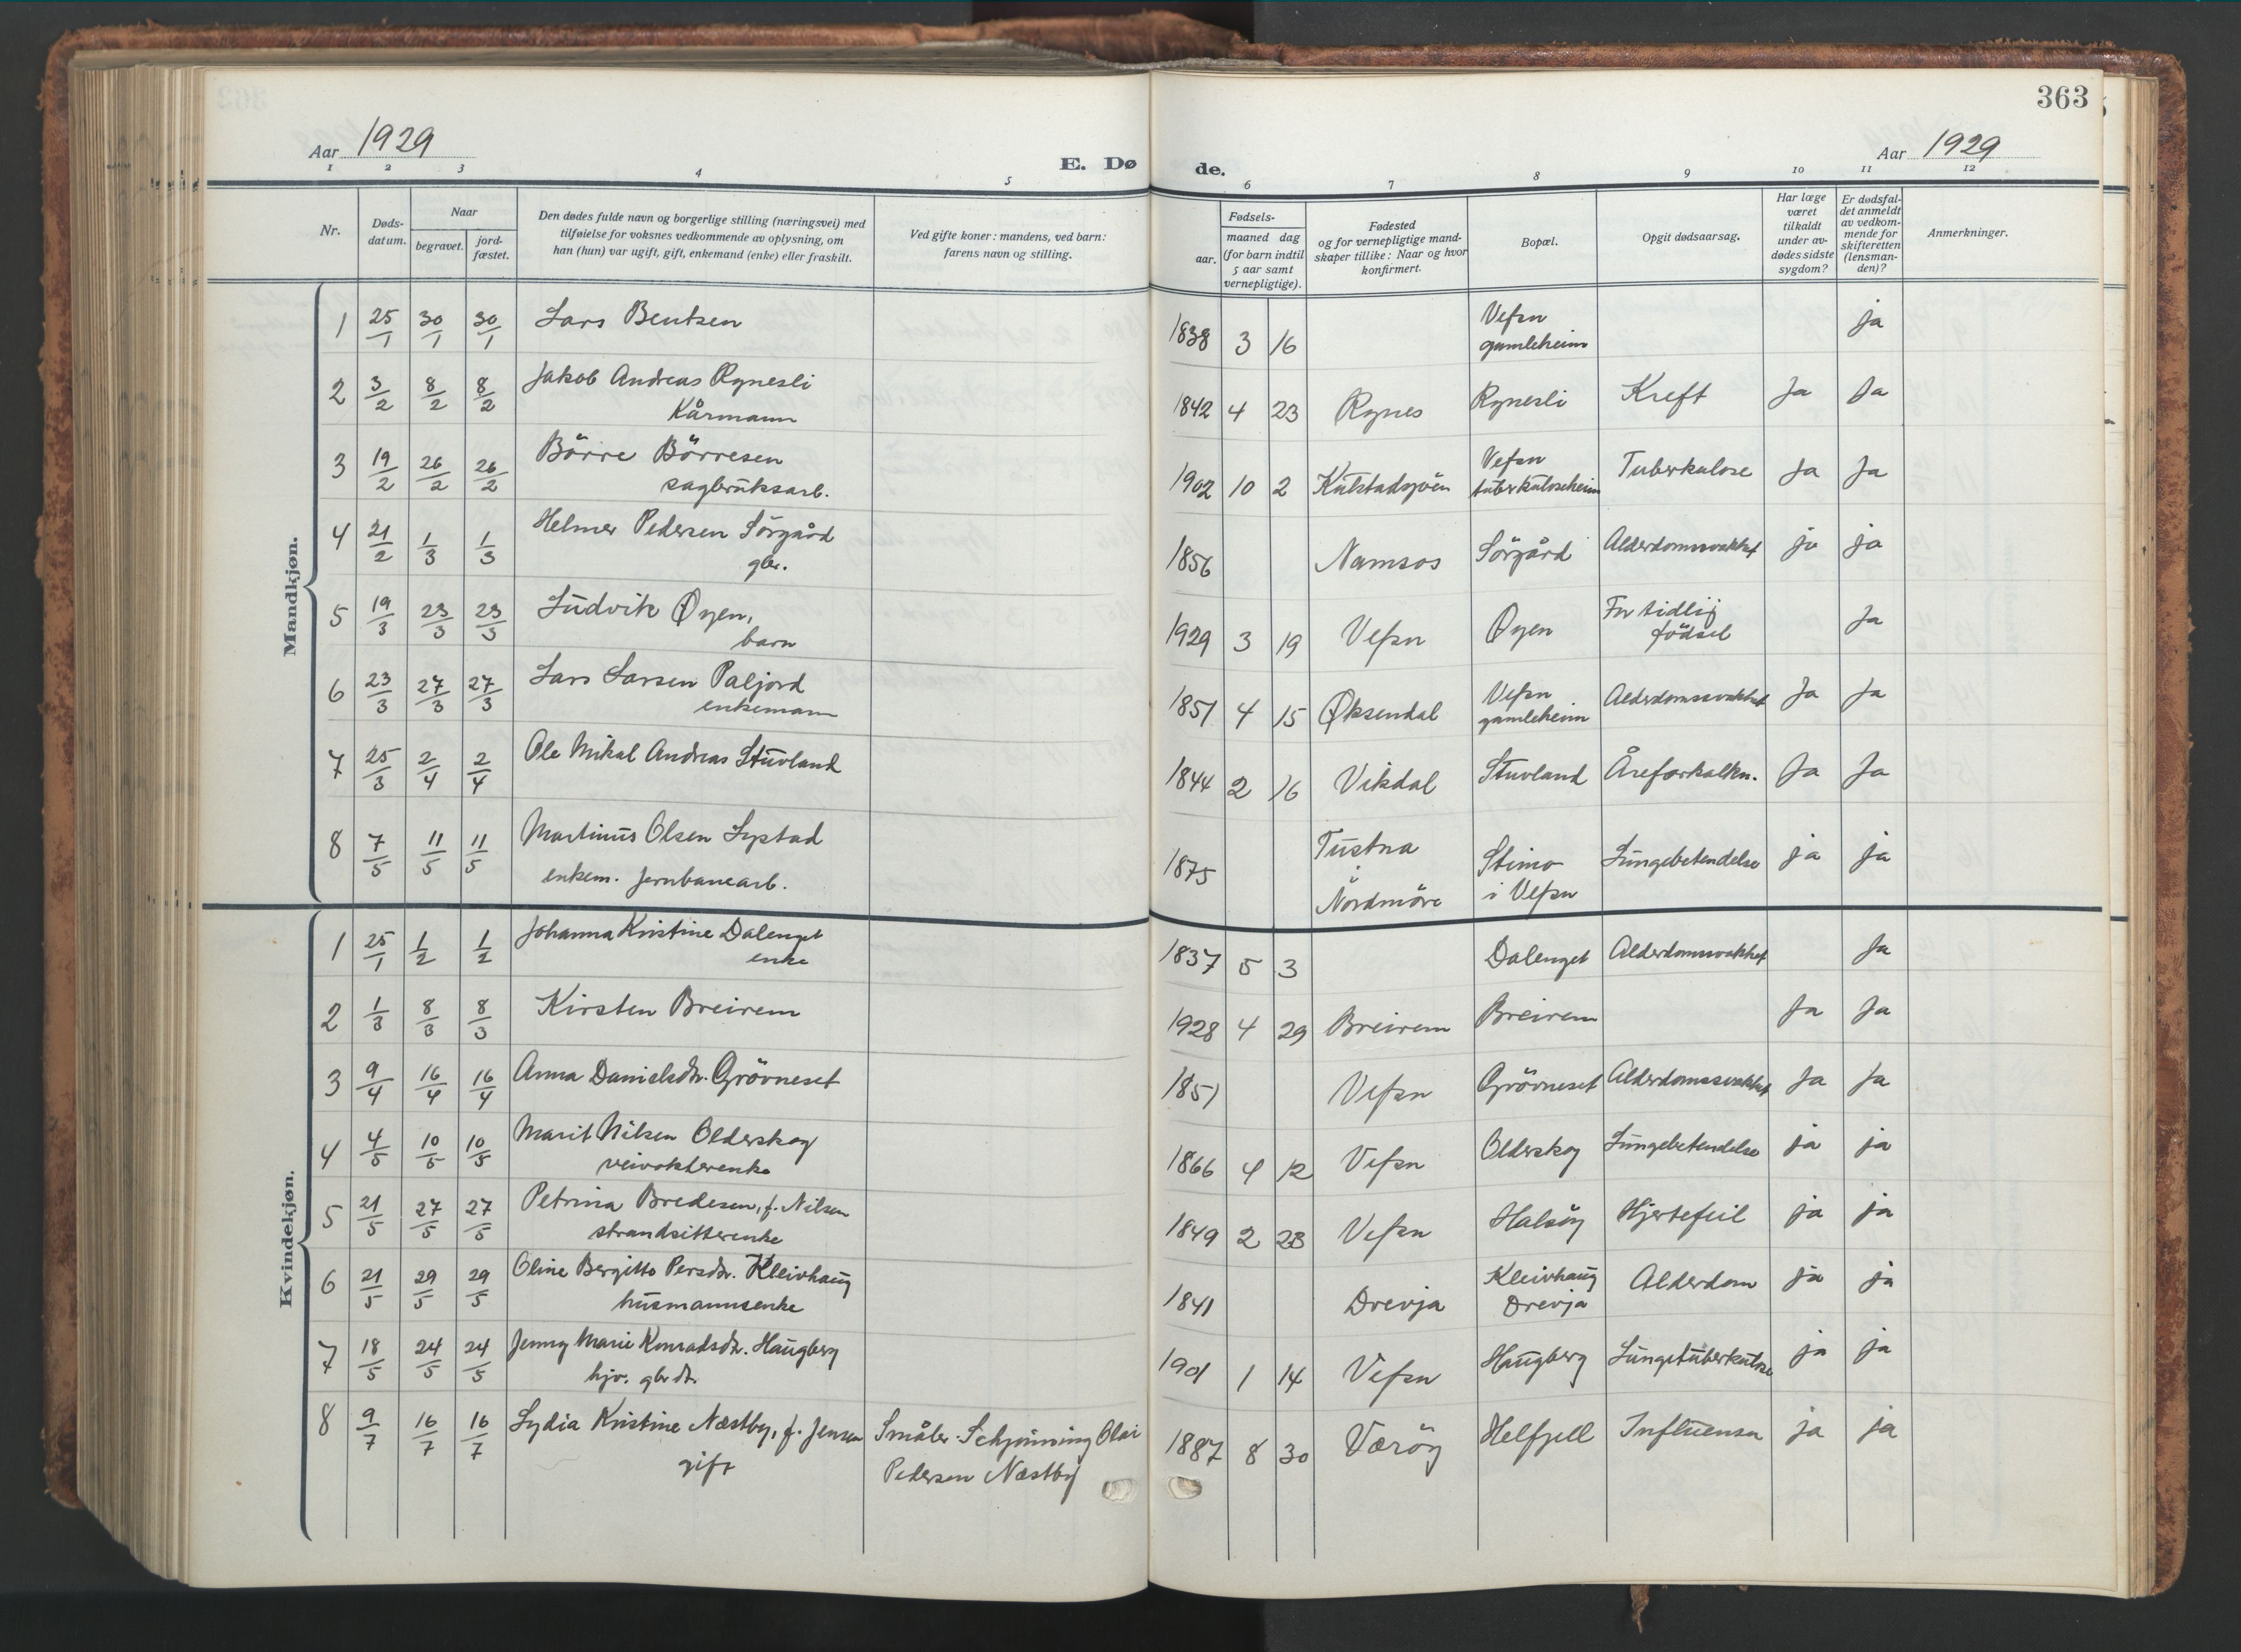 363
Aar 1929
E. Dø
de.
Aar 1929
1 2 3 4 5 6 7 8 9 10 11 12
Nr.
Døds-
datum.
Naar
begravet.
jord-
fæstet.
Den dødes fulde navn og borgerlige stilling (næringsvei) med
tilføielse for voksnes vedkommende av oplysning, om
han (hun) var ugift, gift, enkemand (enke) eller fraskilt.
Ved gifte koner: mandens, ved barn:
farens navn og stilling.
Fødsels-
aar.
maaned dag
(for barn indtil
5 aar samt
vernepligtige).
Fødested
og for vernepligtige mand-
skaper tillike: Naar og hvor
konfirmert.
Bopæl.
Opgit dødsaarsag.
Har læge
været
tilkaldt
under av-
dødes sidste
sygdom?
Er dødsfal-
det anmeldt
av vedkom-
mende for
skifteretten
(lensman-
den)?
Anmerkninger.
Mandkjøn.
1 25/1 30/1 30/1 Lars Bentsen 1838 3 16 Vefsn gamleheim ja
2 3/2 8/2 8/2 Jakob Andreas Rynesli 1842 4 23 Rynes Rynesli Kreft Ja Ja
Kårmann
3 19/2 26/2 26/2 Börre Börresen 1902 10 2 Kulstadsjöen Vefsn tuberkuloseheim Tuberkulose Ja Ja
sagbruksarb.
4 21/2 1/3 1/3 Helmer Pedersen Sörgård 1856 Namsos Sörgård Alderdomssvakhet ja ja
gbr.
5 19/3 23/3 23/3 Ludvik Øyen, 1929 3 19 Vefsn Øyen For tidlig födsel Ja
barn
6 23/3 27/3 27/3 Lars Larsen Paljord 1851 4 15 Øksendal Vefsn gamleheim Alderdomssvakhet Ja Ja
enkemann
7 25/3 2/4 2/4 Ole Mikal Andreas Stuvland 1844 2 16 Vikdal Stuvland Åreforkalkn. Ja Ja
8 7/5 11/5 11/5 Martinus Olsen Lystad 1875 Tustna Nordmöre Stimo i Vefsn Lungebetendelse ja ja
enkem. jernbanearb.
Kvindekjøn.
1 25/1 1/2 1/2 Johanna Kristine Dalenget 1837 5 3 Dalenget Alderdomssvakhet Ja
enke
2 1/3 8/3 8/3 Kirsten Breirem 1928 4 29 Breirem Breirem Ja Ja
3 9/4 16/4 16/4 Anna Danielsdtr. Grövneset 1851 Vefsn Grövneset Alderdomssvakhet Ja Ja
4 4/5 10/5 10/5 Marit Nilsen Olderskog 1866 4 12 Vefsn Olderskog Lungebetendelse ja ja
veivokterenke
5 21/5 27/5 27/5 Petrina Bredesen, f. Nilsen 1849 2 23 Vefsn Halsöy Hjertefeil ja ja
strandsitterenke
6 21/5 29/5 29/5 Oline Bergitte Persdtr. Kleivhaug 1841 Drevja Kleivhaug Drevja Alderdom ja ja
husmannsenke
7 18/5 24/5 24/5 Jenny Marie Konradsdtr. Haugberg 1901 1 14 Vefsn Haugberg Lungetuberkulose ja ja
hjv. gbrdtr.
8 9/7 16/7 16/7 Lydia Kristine Næstby, f. Jensen Småbr. Schjönning Olai 1887 8 30 Væröy Helfjell Influensa ja ja
gift Pedersen Næstby